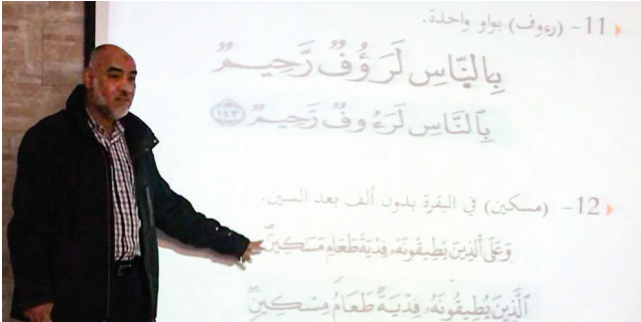 11- (رءوف) بواو واحدة.
بِالنَّاسِ لَرَؤُفٌ رَّحِيمٌ
بِٱلنَّاسِ لَرَءُوفٌ رَّحِيمٌ ١٤٣
12- (مسكين) في البقرة بدون ألف بعد السين.
وَعَلَى اَلذِينَ يُطِيقُونَهُۥ فِدْيَةُ طَعَامِ مَسَٰكِينَ
ٱلَّذِينَ يُطِيقُونَهُۥ فِدْيَةٌ طَعَامُ مِسْكِينٍ